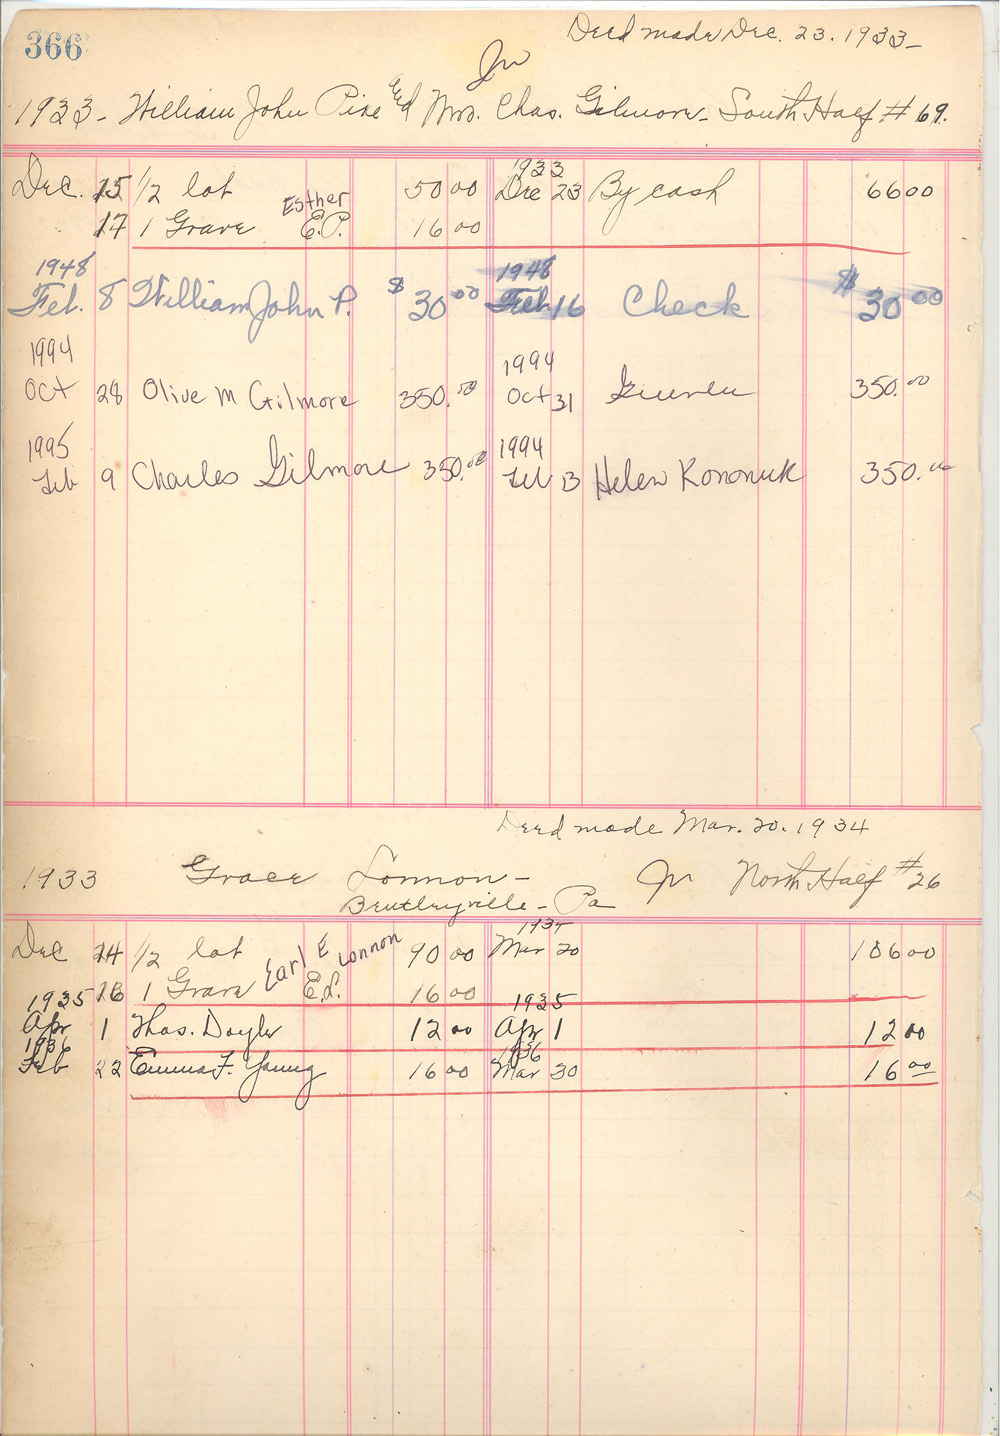 366
Deed made Dec. 23. 1933-
In
1933- William John Pixe and Mrs. Chas. Gilmore- South Half # 69.
Dec. 15 1/2 lot 50 00 1933 Dec 23 By cash 66 00
17 1 Grave Esther E.P. 16 00
1948 Feb. 8 William John P. $ 30 00 1948 Feb. 16 Check $ 30 00
1994 Oct 28 Olive M Gilmore 350.00 1994 Oct 31 350.00
1995 Feb 9 Charles Gilmore 350.00 1994 Feb 13 Helen Kononuk 350.00
Deed made Mar. 20. 1934
1933 Grace Lonnon- In North Half # 26
Bentleyville- Pa
Dec 14 1/2 lot 90 00 1934 Mar 20 106 00
16 1 Grave Earl E Lonnon E.L. 16 00
1935 Apr 1 Thos. Dayler 12 00 1935 Apr 1 12 00
1936 Feb 22 Emma F. Young 16 00 1936 Mar 30 16 00